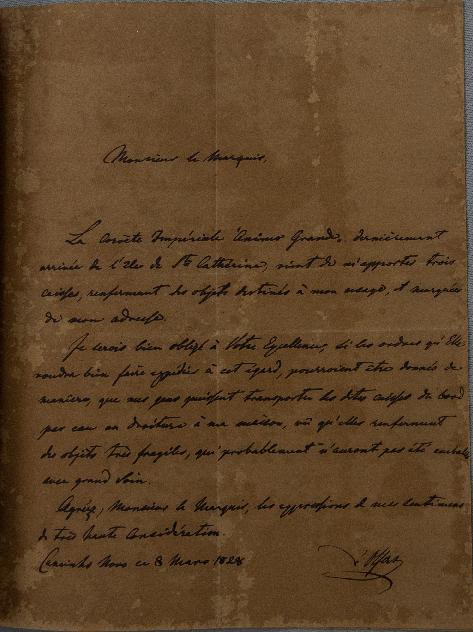 Monsieur le Marquis,
La Corvete Impériale Animo Grande, dernièrement
arrivée de l'Isle de Ste Catherine, vient de m'apporter trois
caisses, renfermant des objets destinés à mon usage, et marquées
de mon adresse.
Je serois bien obligé à Votre Excellence, si les ordres qu'Elle
voudra bien faire expédier à cet égard, pourroient être donnés de
manière, que mes gens puissent transporter les dites caisses du bord
par eau en droiture à ma maison, vû qu'elles renferment
des objets très fragiles, qui probablement n'auront pas été emballés
avec grand soin.
Agréez, Monsieur le Marquis, les expressions de mes sentimens
de très haute Considération.
Caminho Novo ce 8 Mars 1828
d'Olfers